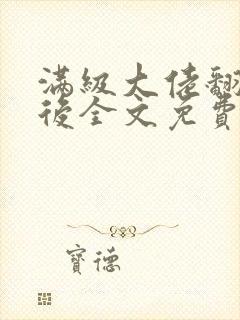 满級大佬翻
後全文免費
寶德